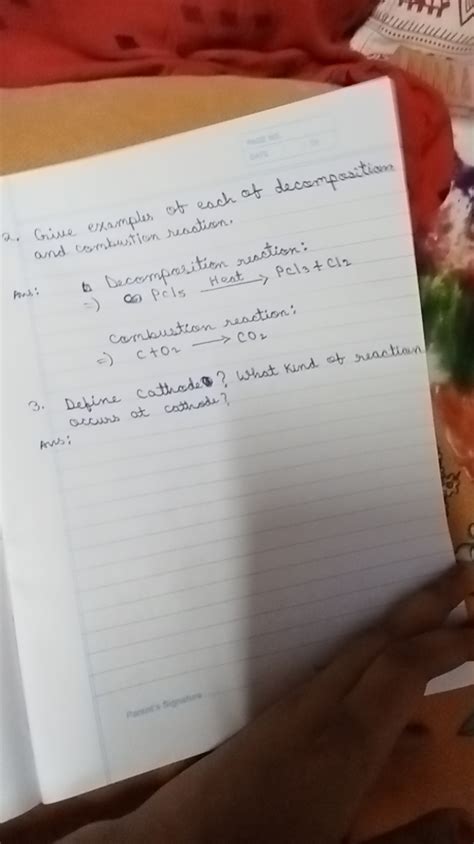 PAGE NO.
DATE
2. Give examples of each of decomposition
and combustion reaction.
Ans: Decomposition reaction:
=) PCl5 Heat → PCl3 + Cl2
Combustion reaction:
=) C + O2 → CO2
3. Define cathode? What kind of reaction
occurs at cathode?
Ans:
Parent's Signature